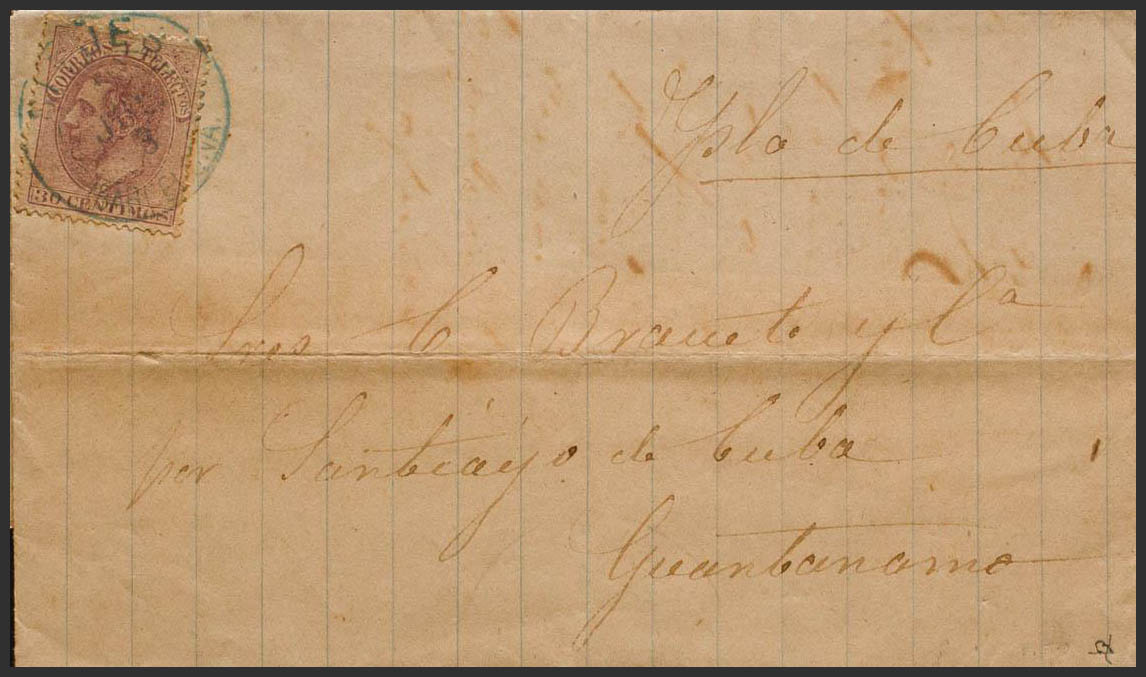 CORREOS Y TELEGFOS
30 CENTIMOS
Ysla de Cuba
Sres C Brauet y Cª
por Santiágo de Cuba
Guantanamo